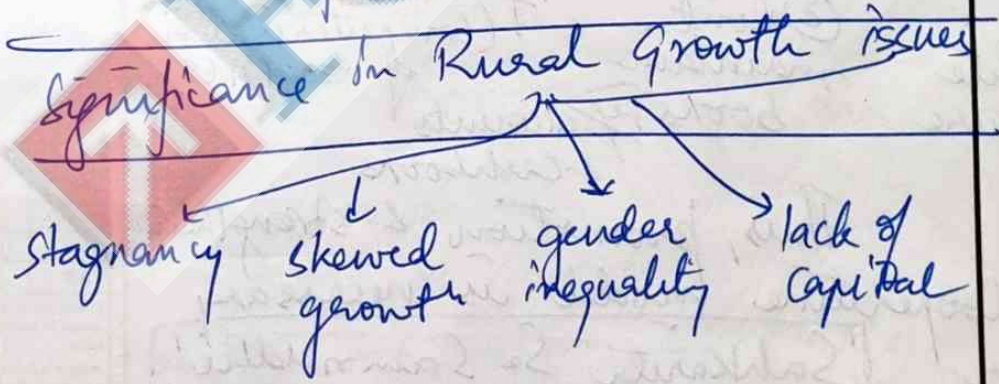 Significance in Rural Growth issues
stagnancy skewed growth gender inequality lack of capital